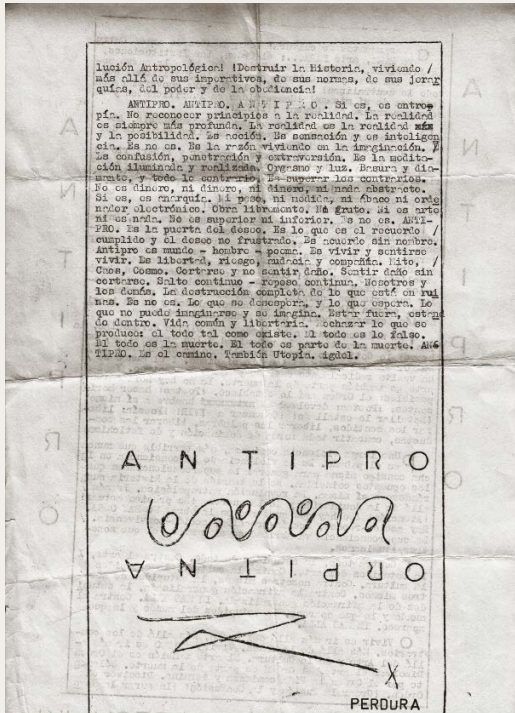 lución Antropológica! !Destruir la Historia, viviendo /
más allá de sus imperativos, de sus normas, de sus jerar
quías, del poder y de la obediencia!
ANTIPRO. ANTIPRO. A N T I P R O . Si es, es entro-
pía. No reconocer principios a la realidad. La realidad
es siempre más profunda. La realidad es la realidad
y la posibilidad. Es acción. Es sensación y es inteligen
cia. Es no es. Es la razón viviendo en la imaginación. /
Es confusión, penetración y extraversión. Es la medita-
ción iluminada y realizada. Orgasmo y luz. Basura y dia-
mante, y todo lo contrario. Es superar los contrarios.
No es dinero, ni dinero, ni dinero, ni nada abstracto.
Si es, es anarquía. Ni peso, ni medida, ni ábaco ni orde
nador electrónico. Obra libremente. No gratuito. Ni es arte
ni es nada. No es superior ni inferior. Es no es. ANTI-
PRO. Es la puerta del deseo. Es lo que es el recuerdo /
cumplido y el deseo no frustrado. Es acuerdo sin nombre.
Antipro es mundo - hombre - poema. Es vivir y sentirse
vivir. Es libertad, riesgo, audacia y compañía. Mito, /
Caos, Cosmo. Cortarse y no sentir daño. Sentir daño sin
cortarse. Salto continuo - reposo continuo. Nosotros y
los demás. La destrucción completa de lo que está en rui
nas. Es no es. Lo que se desespera, y lo que espera. Lo
que no puede imaginarse y se imagina. Estar fuera, estan
do dentro. Vida común y libertaria. Rechazar lo que se
produce: el todo tal como existe. El todo es lo falso.
El todo es la muerte. El todo es parte de la muerte. AN
TIPRO. Es el camino. También Utopía.
A N T I P R O
ORPITNA
X
PERDURA